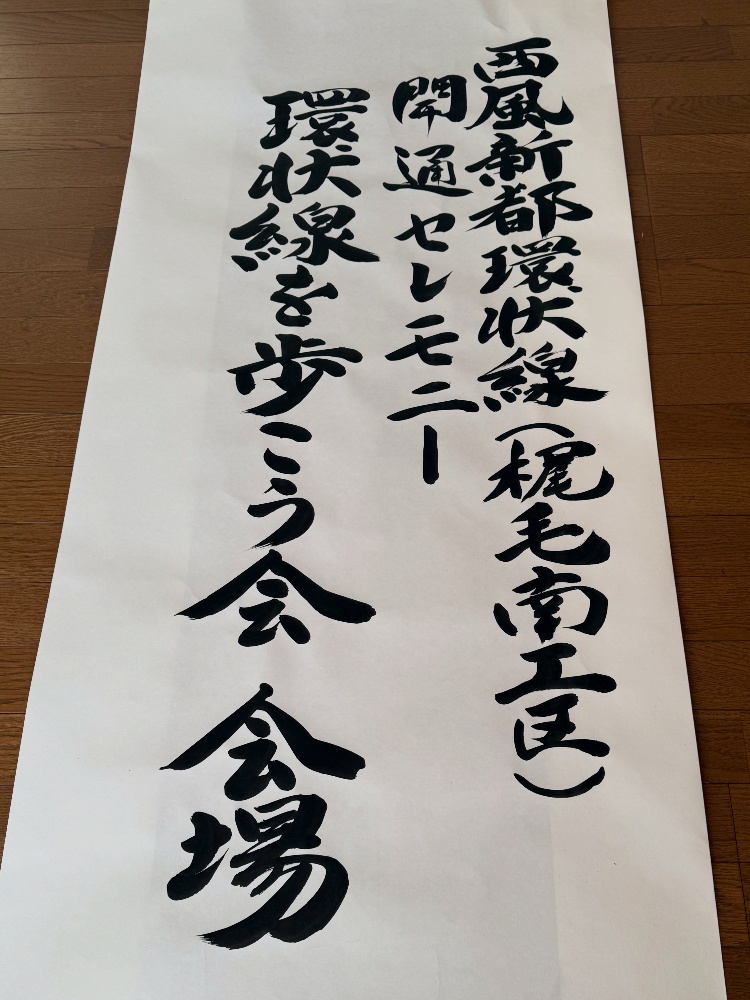 西風新都環状線(梶毛南工区)
開通セレモニー
環状線を歩こう会 会場